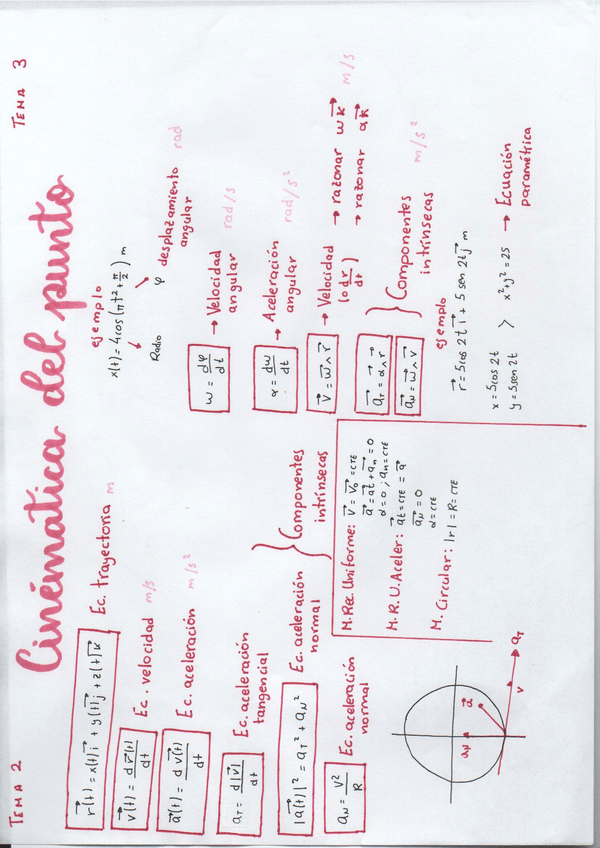 TEMA 2
TEMA 3
Cinématica del punto
r⃗(t) = x(t)i⃗ + y(t)j⃗ + z(t)k⃗
Ec. trayectoria m
v⃗(t) = d r⃗(t) / dt
Ec. velocidad m/s
a⃗(t) = d v⃗(t) / dt
Ec. aceleración m/s²
a_T = d|v⃗| / dt
Ec. aceleración
tangencial
|a⃗(t)|² = a_T² + a_N²
Ec. aceleración
normal
Componentes
intrínsecas
a_N = v² / R
Ec. aceleración
normal
a_N
a⃗
v
a_T
M. Rec. Uniforme: v⃗ = v₀⃗ = CTE
a⃗ = a⃗t + a⃗n = 0
α = 0 ; an = CTE
M. R. U. Aceler: a⃗t = CTE = a⃗
a⃗_N = 0
α = CTE
M. Circular: |r| = R = CTE
ejemplo
x(t) = 4 cos (πt² + π/2) m
Radio
φ desplazamiento
angular rad
ω = dφ / dt
→ Velocidad
angular rad/s
α = dω / dt
→ Aceleración
angular rad/s²
v⃗ = ω⃗ ∧ r⃗
→ Velocidad
(o dr⃗/dt)
→ razonar ωk⃗ m/s
→ razonar αk⃗
a_T⃗ = α⃗ ∧ r⃗
a_N⃗ = ω⃗ ∧ v⃗
Componentes
intrínsecas m/s²
ejemplo
r⃗ = 5 cos 2t i⃗ + 5 sen 2t j⃗ m
x = 5 cos 2t
y = 5 sen 2t
> x² + y² = 25 → Ecuación
paramétrica